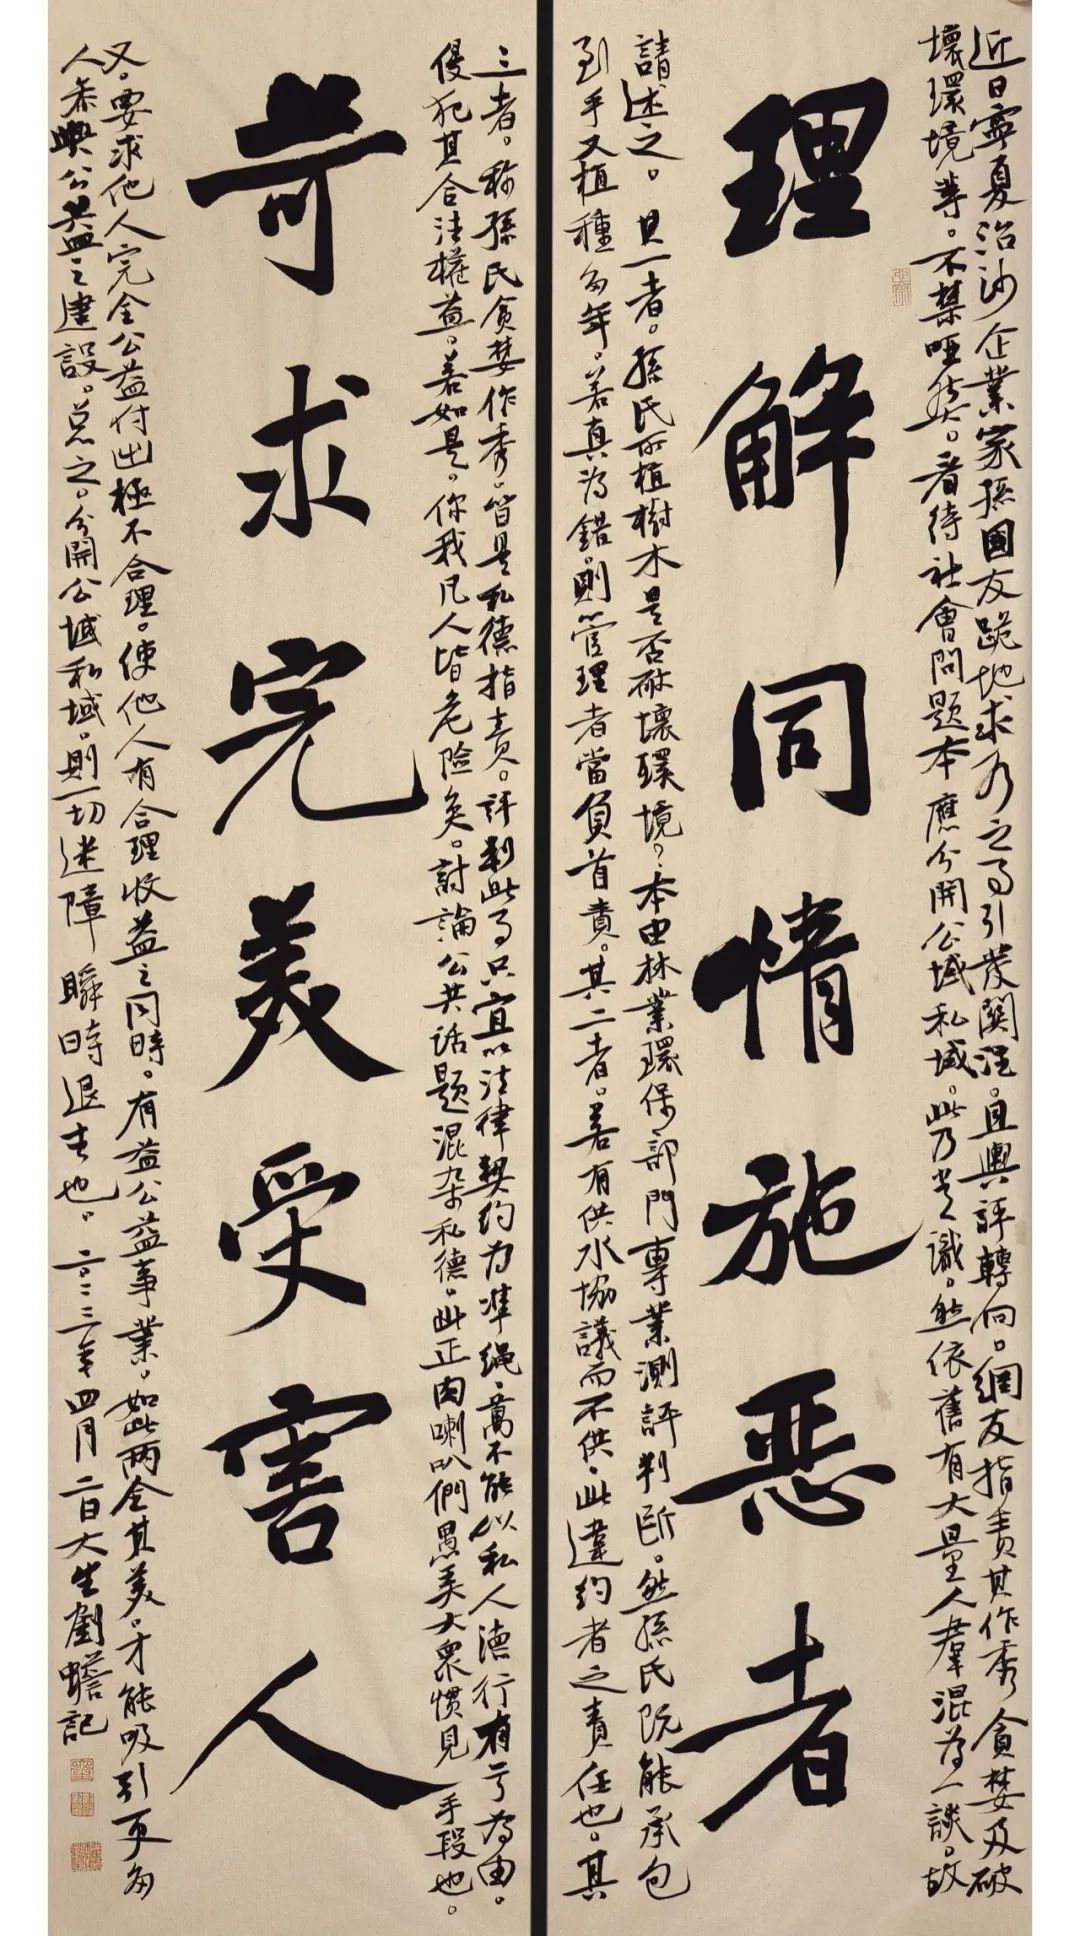 近日寧夏治沙企業家孫國友跪地求水之事引發關注。且輿評轉向。網友指責其作秀貪婪及破
壞環境等。不禁啞然。看待社會問題本應分開公域私域。此乃常識。然依舊有大量人羣混為一談。故
理解同情施惡者
請述之。其一者。孫氏所植樹木是否破壞環境？本由林業環保部門專業測評判斷。然孫氏既能承包
到手又植種多年。若真為錯。則管理者當負首責。其二者。若有供水協議而不供、此違約者之責任也。其
三者。称孫氏貪婪作秀。皆是私德指責。評判此事只宜以法律契约为準绳、萬不能以私人德行有亏為由。
侵犯其合法權益。若如是。你我凡人皆危險矣。討論公共话题混杂私德。此正肉喇叭們愚弄大眾慣見手段也。
苛求完美受害人
又。要求他人完全公益付出極不合理。使他人有合理收益之同時。有益公益事業。如此两全其美。才能吸引更多
人参與公益之建設。总之。分開公域私域。則一切迷障瞬時退去也。二〇二三年四月二日大生劉蟾記